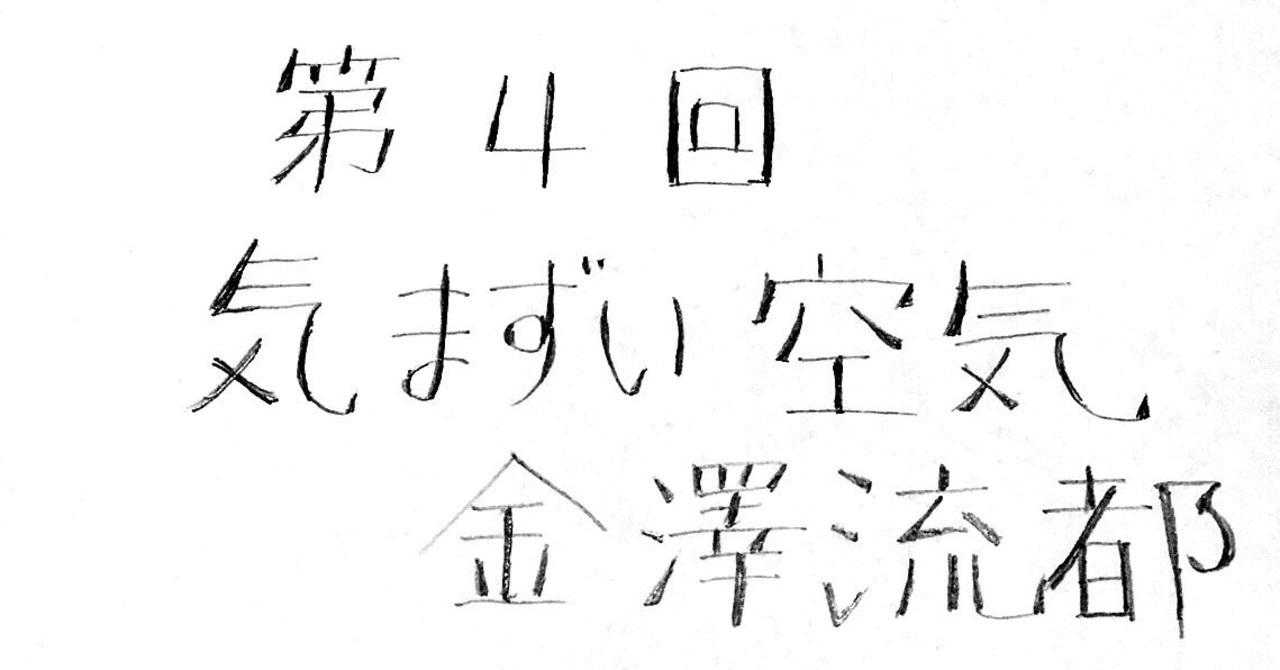 第4回
気まずい空気
金澤流都